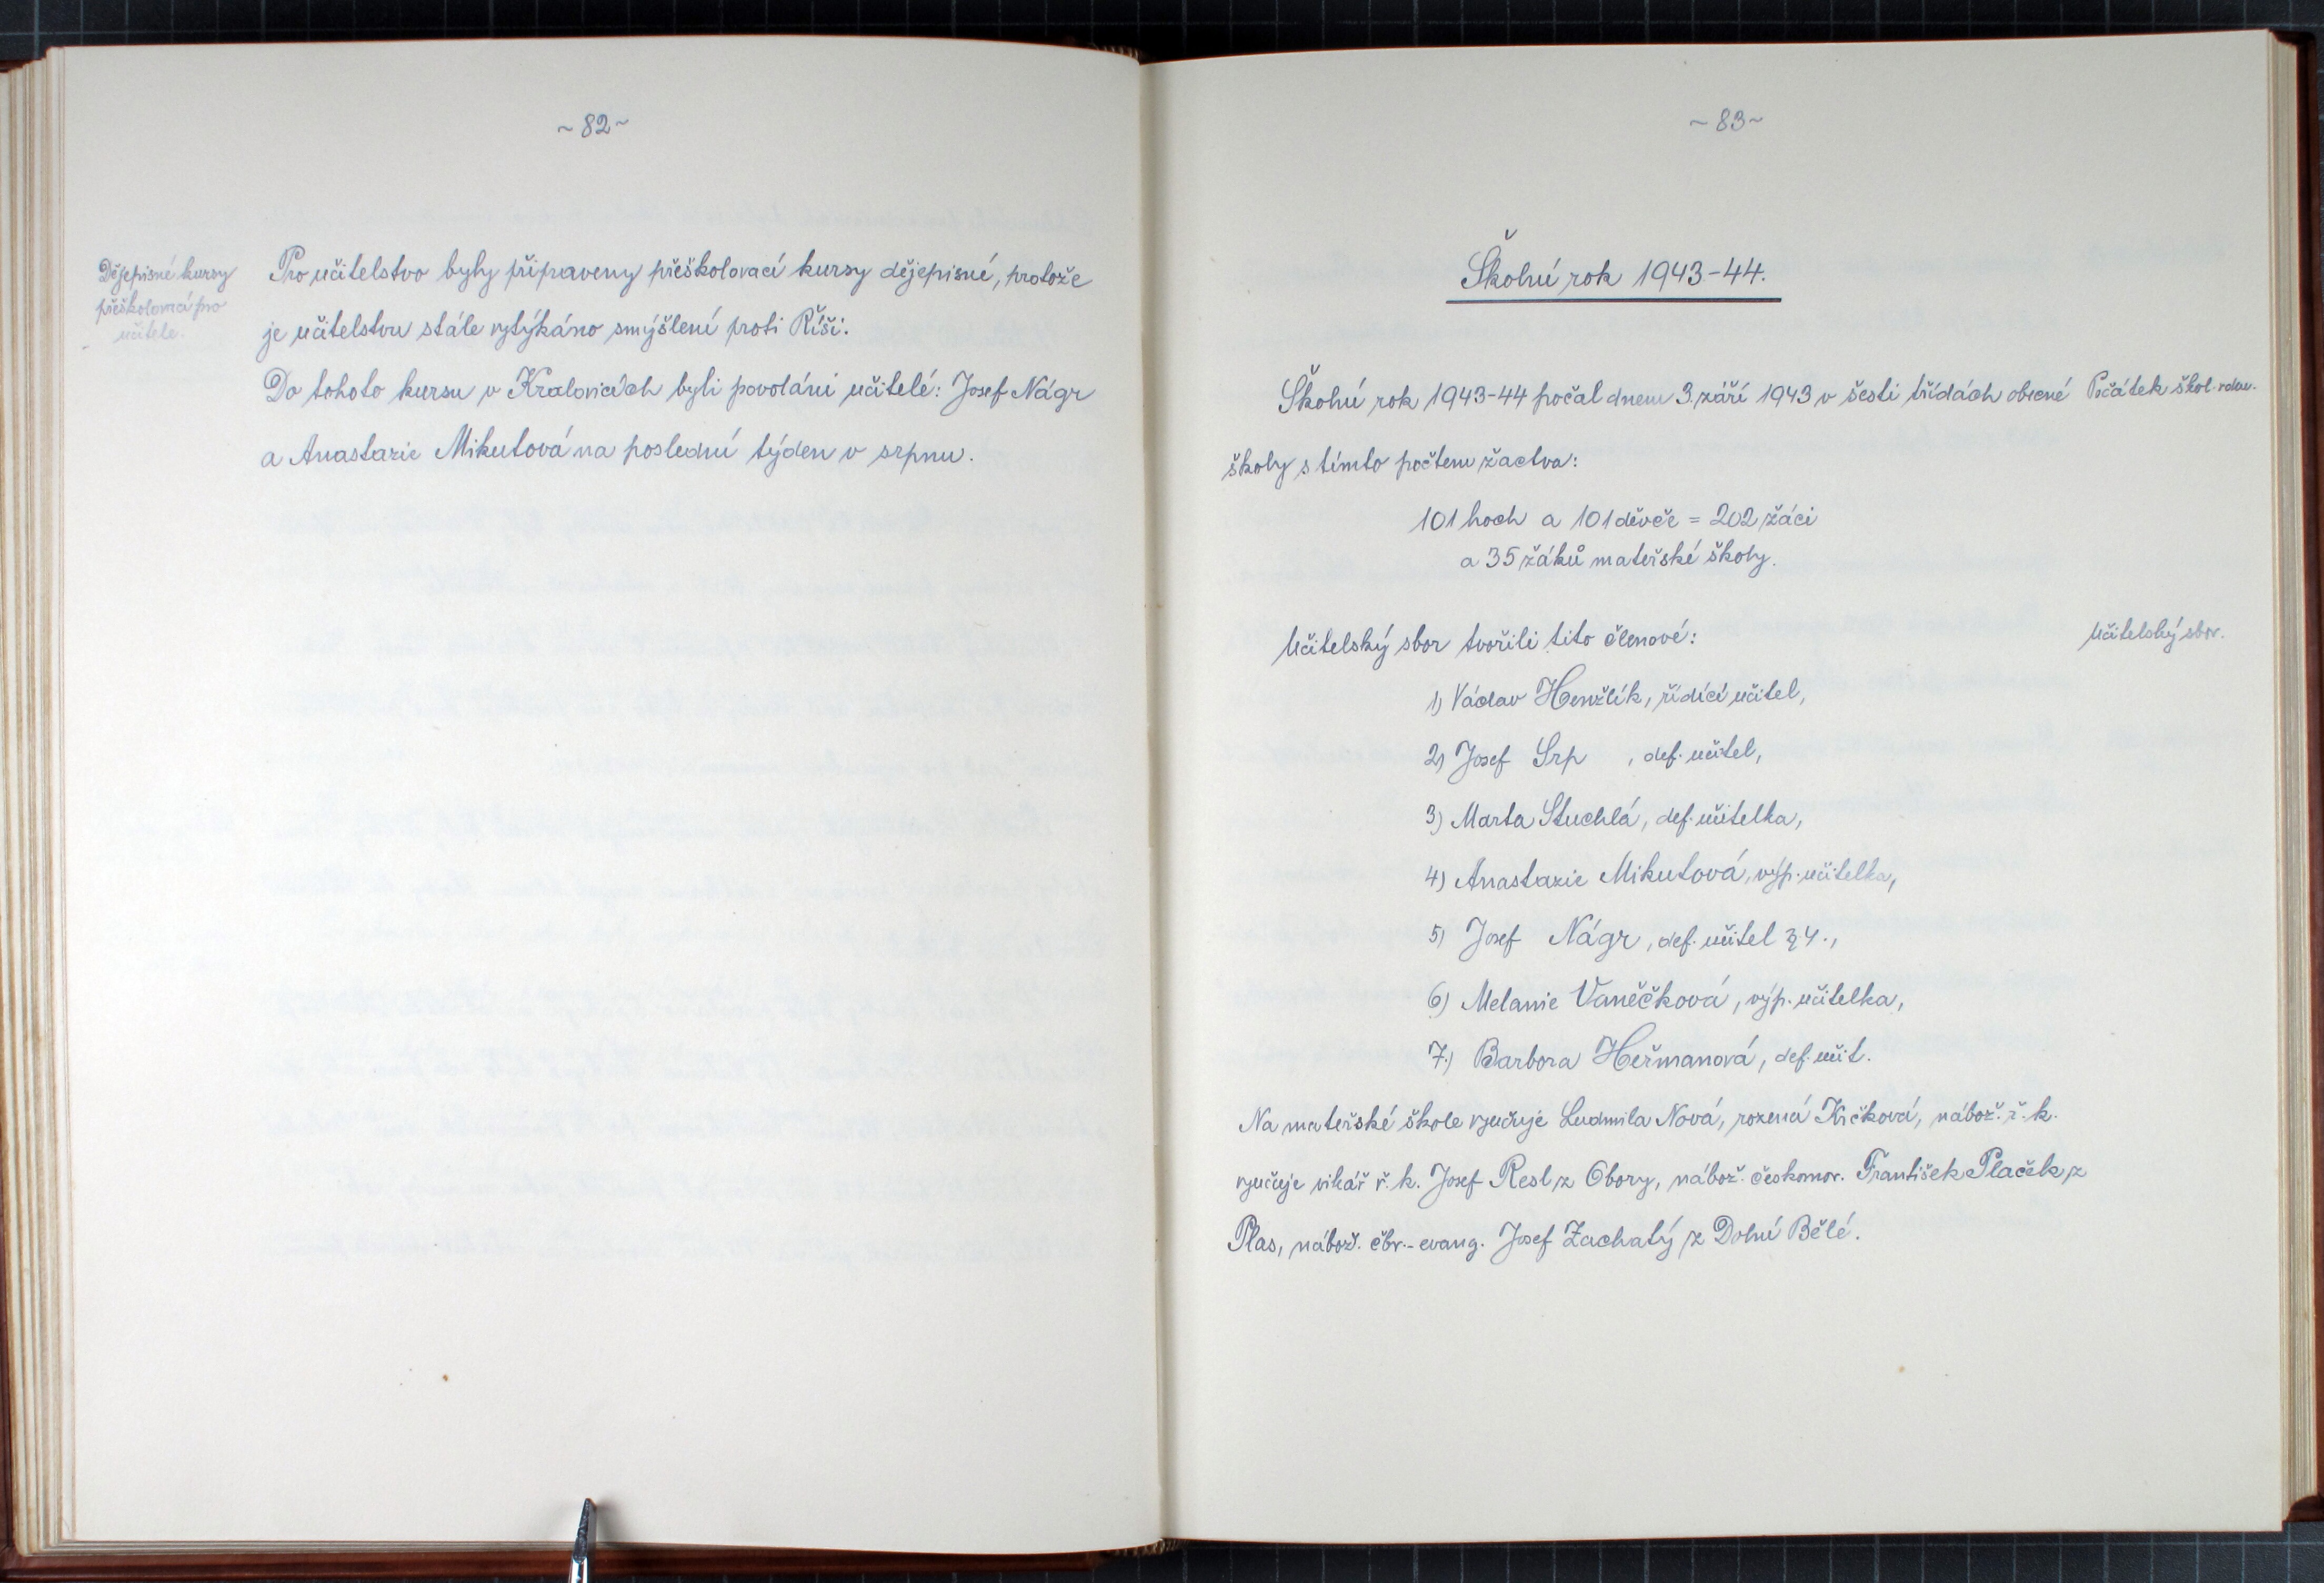 ~ 82 ~
Dějepisné kursy
přeškolovací pro
učitele.
Pro učitelstvo byly připraveny přeškolovací kursy dějepisné, protože
je učitelstvu stále vytýkáno smýšlení proti Říši.
Do tohoto kursu v Kralovicích byli povoláni učitelé: Josef Nágr
a Anastazie Mikutová na poslední týden v srpnu.
~ 83 ~
Školní rok 1943-44.
Školní rok 1943-44 počal dnem 3. září 1943 v šesti třídách obecné
Počátek škol. roku.
školy s tímto počtem žactva:
101 hoch a 101 děvče = 202 žáci
a 35 žáků mateřské školy.
Učitelský sbor tvořili tito členové:
Učitelský sbor.
1) Václav Henžlík, řídící učitel,
2) Josef Srp , def. učitel,
3) Marta Stuchlá, def. učitelka,
4) Anastazie Mikutová, výp. učitelka,
5) Josef Nágr, def. učitel z. y.,
6) Melanie Vaněčková, výp. učitelka,
7.) Barbora Heřmanová, def. učit.
Na mateřské škole vyučuje Ludmila Nová, rozená Kičková, nábož. ř. k.
vyučuje vikář ř. k. Josef Resl z Obory, nábož. českomor. František Plaček z
Plas, nábož. čbr.-evang. Josef Zachatý z Dolní Bělé.